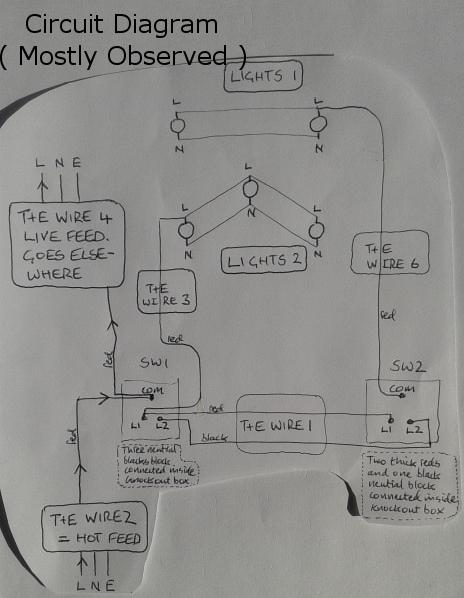 Circuit Diagram
( Mostly Observed )
LIGHTS 1
L
L
N
N
L
L N E
L
N
L
T+E WIRE 4
LIVE FEED.
GOES ELSE-
WHERE
N
LIGHTS 2
N
T+E
WIRE 6
T+E
WIRE 3
red
red
red
SW1
SW2
COM
COM
red
L1 L2
red
black
T+E WIRE 1
L1 L2
Three neutral
blacks block
connected inside
knockout box
Two thick reds
and one black
neutral block
connected inside
knockout box
T+E WIRE2
= HOT FEED
L N E